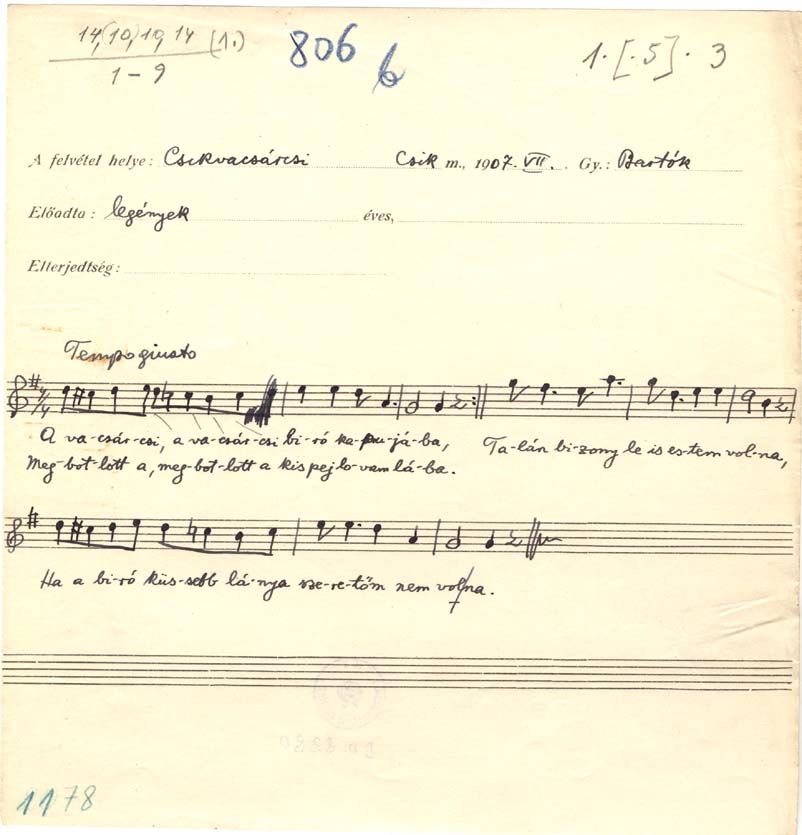 14,(10,)10, 14 (1.)
1 – 9
806
b
1. [. 5] . 3
A felvétel helye: Csikvacsárcsi Csik m., 1907. VII. Gy.: Bartók
Előadta: legények éves,
Elterjedtség:
Tempo giusto
4/4
A va-csár-csi, a va-csár-csi bi-ró ka-pu-já-ba, Ta-lán bi-zony le is es-tem vol-na,
Meg-bot-lott a, meg-bot-lott a kis pej lo-vam lá-ba.
Ha a bi-ró küs-sebb lá-nya sze-re-tőm nem volna.
1178